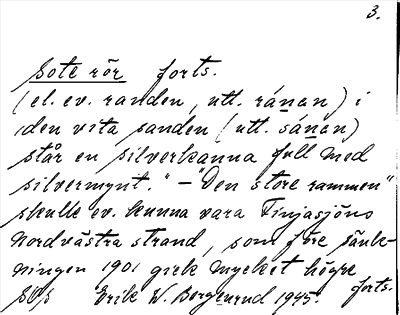 3.
Sote rör forts.
(el. ev. randen, utt. ránan) i
den vita sanden (utt. sánan)
står en silverkanna full med
silvermynt." – "Den store rammen"
skulle ev. kunna vara Finjasjöns
nordvästra strand, som före sänk-
ningen 1901 gick mycket högre
forts.
Erik W. Borgenrud 1945.